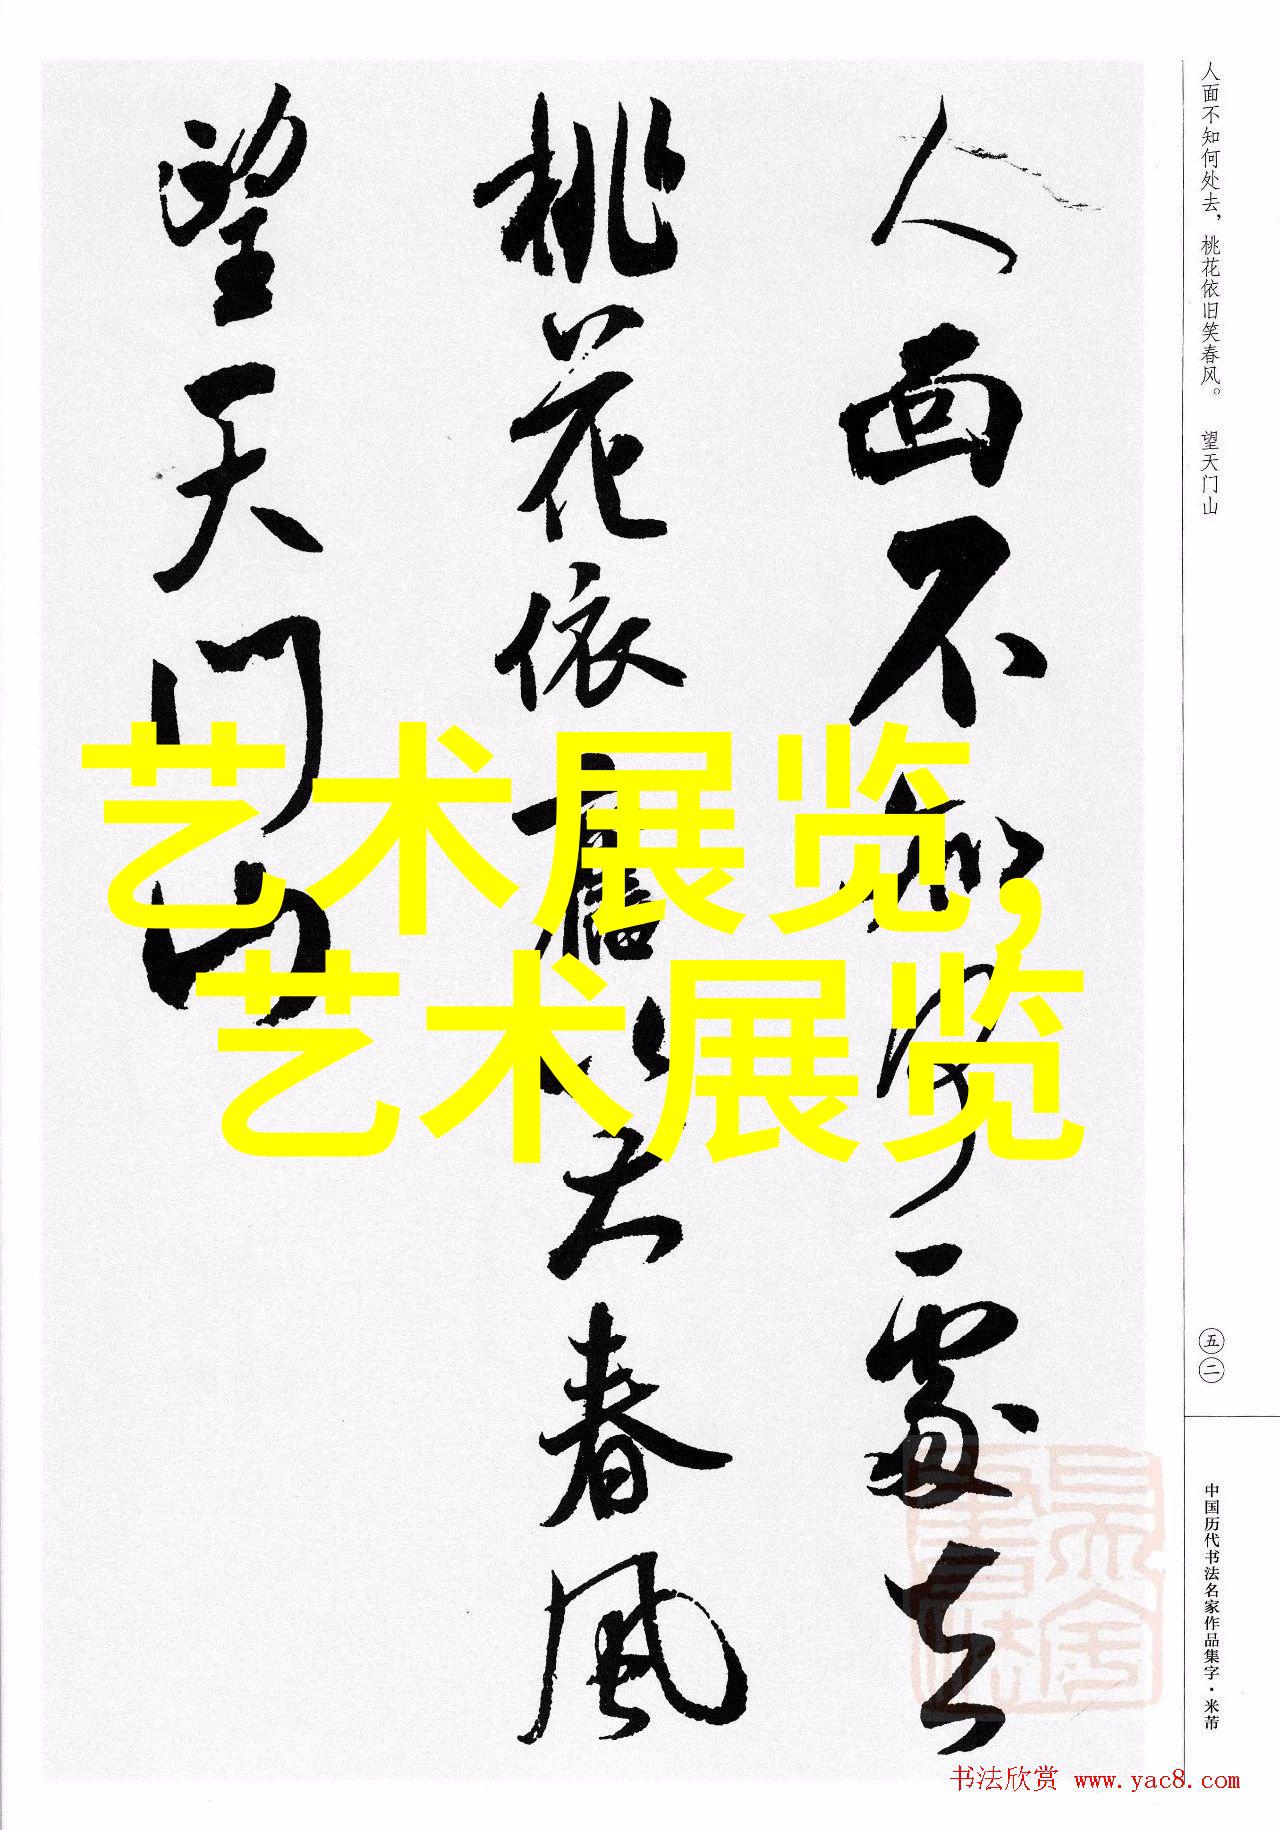 人面不知何處去
桃花依舊笑春風
望天门山
艺术展览,
艺术展览
人面不知何处去，桃花依旧笑春风。 望天门山
五二
中国历代书法名家作品集字·米芾
书法欣赏 www.yac8.com